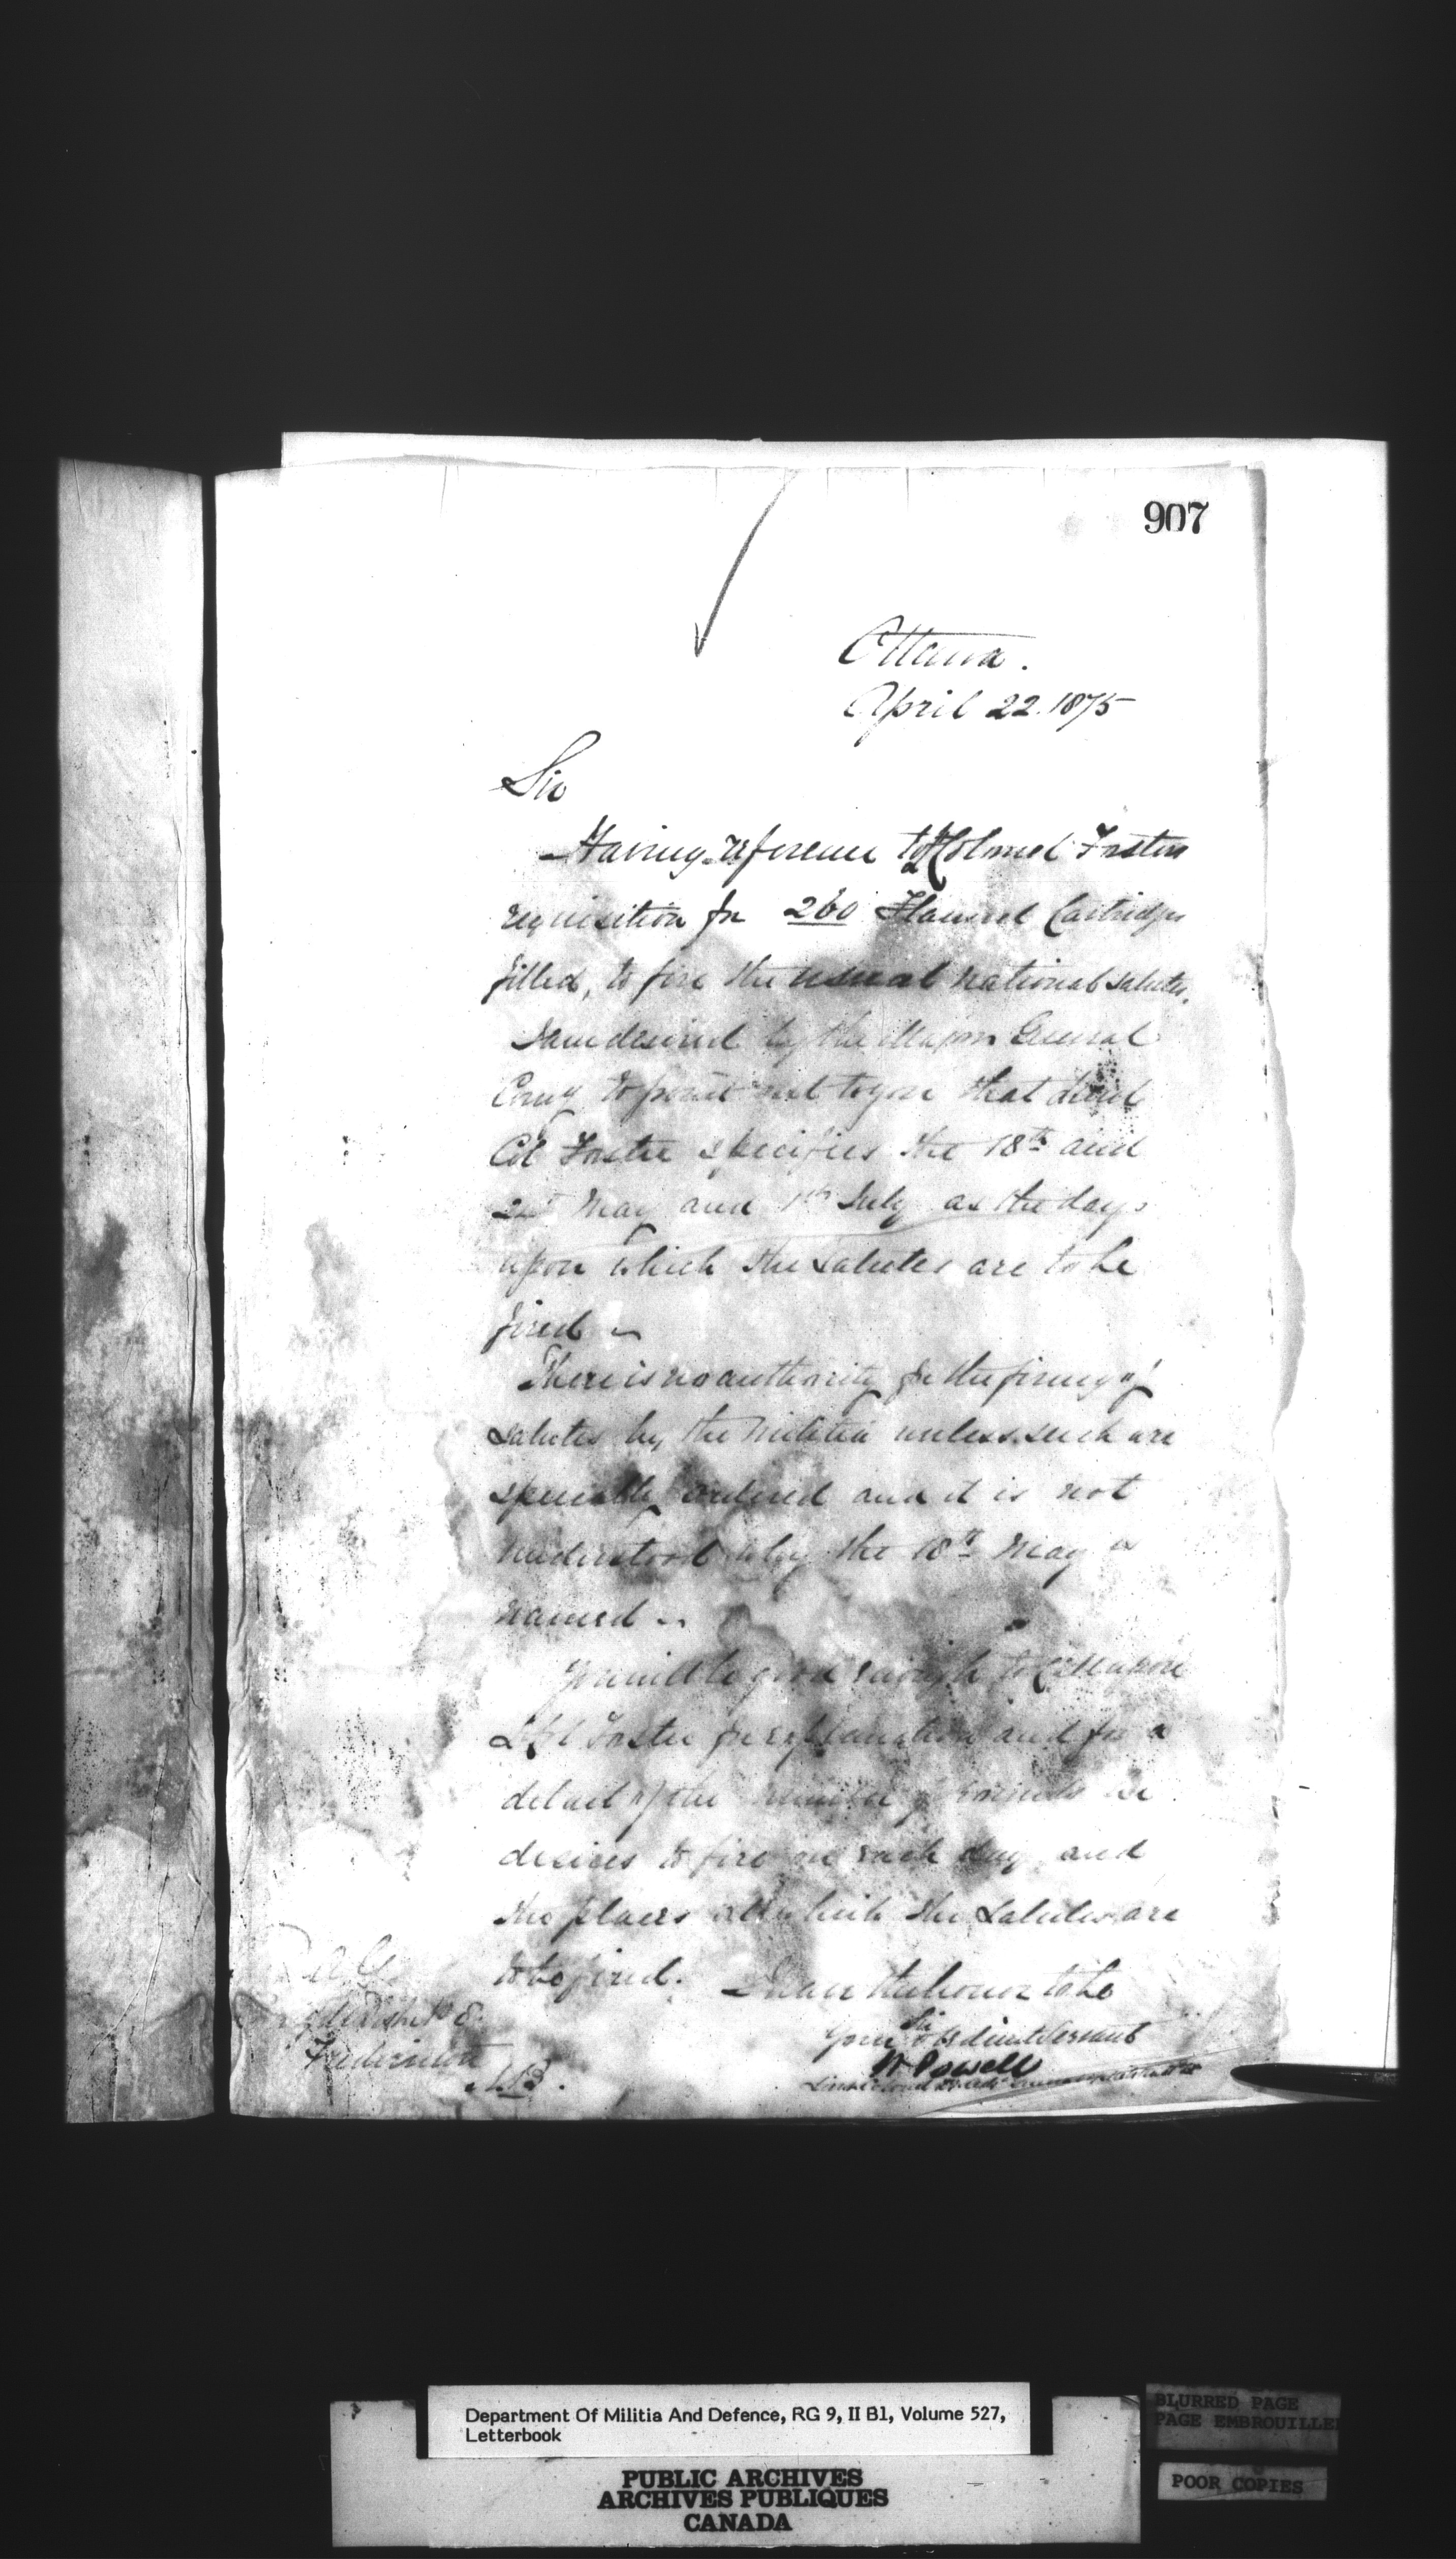 907
Ottawa.
April 22. 1875
Sir
Having reference to Lt Colonel Fosters
requisition for 260 Flannel Cartridges
filled, to fire the usual national salutes,
I am desired by the Major General
Comg to point out to you that Lieut
Col Foster specifies the 18th and
May and 1st July as the days
upon which the salutes are to be
fired ~
There is no authority for the firing of
salutes by the Militia unless such are
specially ordered and it is not
understood why the 18th May is
named ~
You will be good enough to call upon
Lt Col Foster for explanation and for a
detail of the number of rounds he
desires to fire on each day and
the places at which the salutes are
to be fired.
I have the honor to be
Sir
Your obedient Servant
W Powell
District 8.
Fredericton
N.B.
Department Of Militia And Defence, RG 9, II B1, Volume 527,
Letterbook
PUBLIC ARCHIVES
ARCHIVES PUBLIQUES
CANADA
BLURRED PAGE
PAGE EMBROUILLEE
POOR COPIES